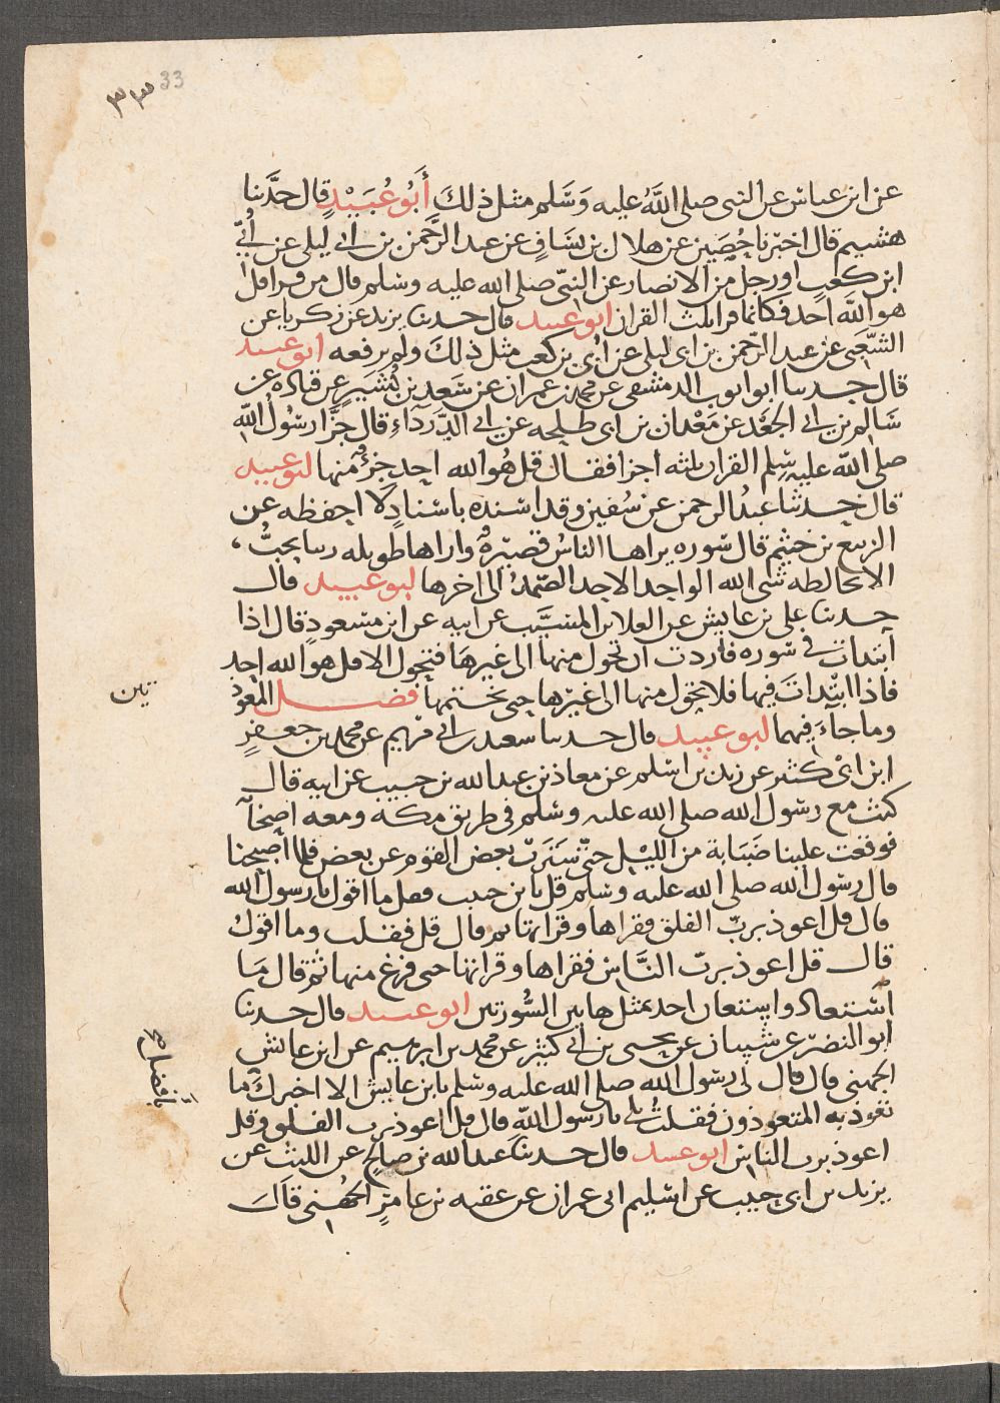 33
٣٣
عن ابن عباس عن النبى صلى اللهُ عليه وَسَلم مثل ذلكَ أَبُو عُبَيْدٍ قال حدَّثنا
هشيم قال اخبرنا حُصَين عن هلال بن يسَافٍ عن عبد الرَّحمن بن ابى ليلى عن أُبىّ
ابن كعبٍ او رجل من الانصار عن النبىّ صلى الله عليه وسلم قال من قرا قل
هو اللَّه احد فكانما قرا ثلث القران ابو عبيد قال حدثنا يزيد عن زكريا عن
الشَّعبى عن عبد الرَّحمن بن ابى ليلى عن أُبى بن كعب مثل ذلكَ ولم يرفعه ابو عبيد
قال حدثنا ابو ايوب الدمشقى عن محمد بن عمران عن سَعيد بن بُشَيرٍ عن قتادة عن
سَالم بن ابى الجعَد عن مَعْدان بن ابى طلحه عن ابى الدَّردَآءِ قال جزَّا رسُولُ اللّه
صلى اللّه عليه وسلم القران ثلثه اجزا فقال قل هُو الله احد جزءٌ منها ابو عبيد
قال حدثنا عبدُ الرحمن عن سُفين وقد اسنده باسْنادٍ لا احفظه عن
الربيع بن خثيم قال سُوره يراها الناسُ قصيرةً واراها طويله
الله الواحد الاحد الصَّمدُ الى اخرها ابو عبيد قال
حدثنا على بن عايش عن العلا بن المسَيَّب عن ابيه عن ابن مسْعودٍ قال اذا
ابتدات فى سُوره فاردت ان تحول منها الى غيرهَا فتحول الا قل هو الله احد
فاذا ابتداتَ فيها فلا تحول منها الى غيرها حتى تختمها فضل المعوذ
تين
وما جآءَ فيهما ابو عبيد قال حدثنا سعيد بن ابى مريم عن محمد بن جعفرٍ
ابن ابى كثير عن زيد بن اسلم عن معاذ بن عبد الله بن خبيب عن ابيه قال
كنت مع رسُول الله صلى الله عليه وسلم فى طريق مكه ومعه اصحابه
فوقعت علينا ضَبَابة من الليْل حتّى سَتَرتْ بعض القوم عن بعض فلما أصبحنا
قال رسُول الله صلى الله عليه وسلم قل يا بن خبيب فقلت ما اقول يا رسول الله
قال قل اعوذ بربّ الفلق فقراها وقراتها ثم قال قل فقلت وما اقولُ
قال قل اعوذ بربّ النَّاس فقراها وقراتها حتى فرغ منها ثم قال مَا
اسْتعاذ او استعان احد بمثل هاتين السُّورتين ابو عبيد قال حدثنا
ابو النضر عن شيبان عن يحيى بن ابى كثير عن محمد بن ابرهيم عن ابن عايش
الجهنى قال قال لى رسُول الله صلى الله عليه وسلم يا بن عايش الا اخبركَ ما
بافضل صح
تعوذ به المتعوذون فقلتُ بلى يا رسول اللهِ قال قل اعوذ برب الفلق وقل
اعوذ برب الناس ابو عبيد قال حدثنا عبد الله بن صالح عن الليث عن
يزيد بن ابى حبيب عن اسْلم ابى عمران عن عقبه بن عامرٍ الجُهنى قال